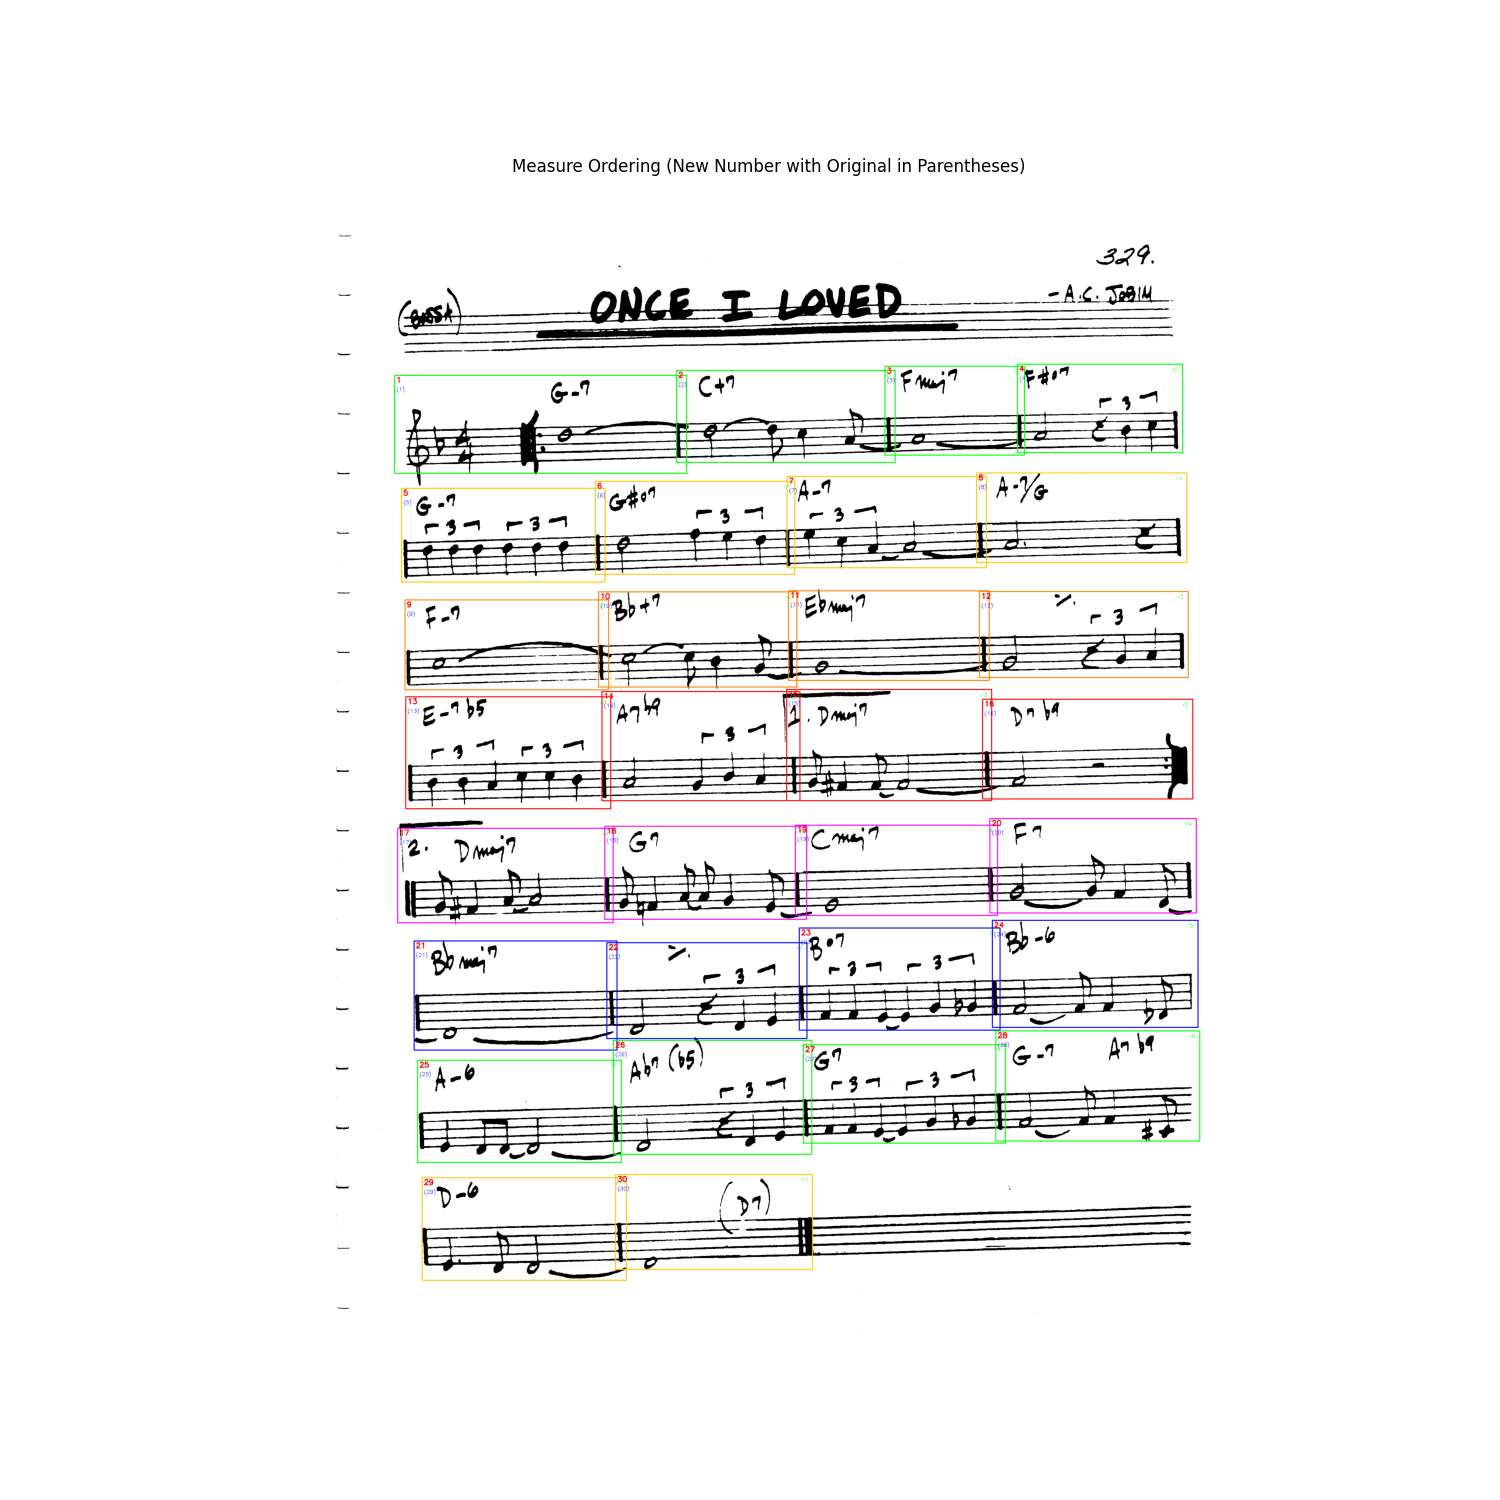 Measure Ordering (New Number with Original in Parentheses)
329.
(BOSSA) ONCE I LOVED - A.C. JOBIM
1 (1) G-7 2 (2) C+7 3 (3) Fmaj7 4 F#o7
3
5 (5) G-7 6 (6) G#o7 7 (7) A-7 8 (8) A-7/G
3 3 3 3
9 (9) F-7 10 (10) Bb+7 11 (11) Ebmaj7 12 (12) ٪
3
13 (13) E-7b5 14 (14) A7b9 1. Dmaj7 16 (16) D7b9
3 3 3
17 2. Dmaj7 18 (18) G7 19 (19) Cmaj7 20 (20) F7
21 (21) Bbmaj7 22 (22) ٪ 23 Bo7 24 (24) Bb-6
3 3 3
25 (25) A-6 26 (26) Ab7 (b5) 27 G7 28 (28) G-7 A7b9
3 3 3
29 (29) D-6 30 (30) (D7)